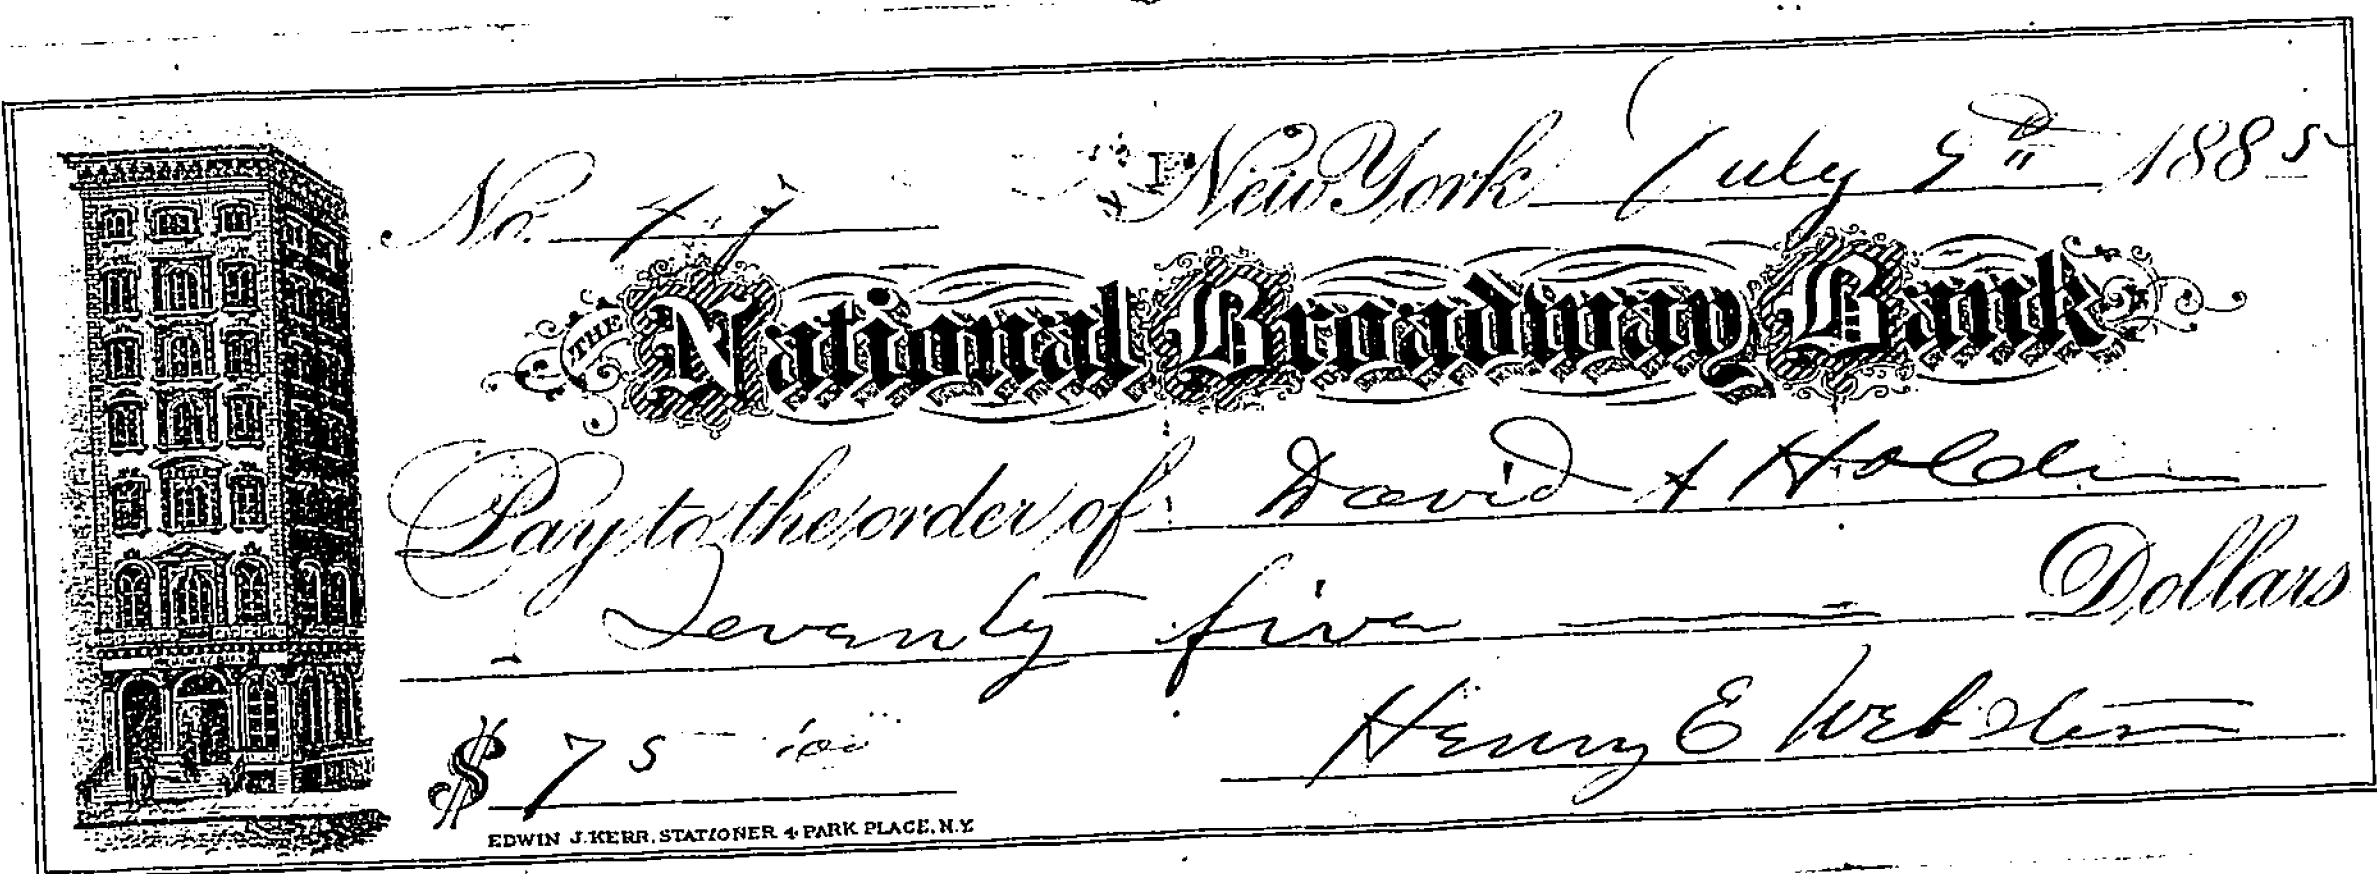 No. New York July 9th 1885
THE National Broadway Bank
Pay to the order of David A Holden
Seventy five Dollars
$ 75 00
Henry E Webster
EDWIN J. KERR, STATIONER 4 PARK PLACE, N.Y.